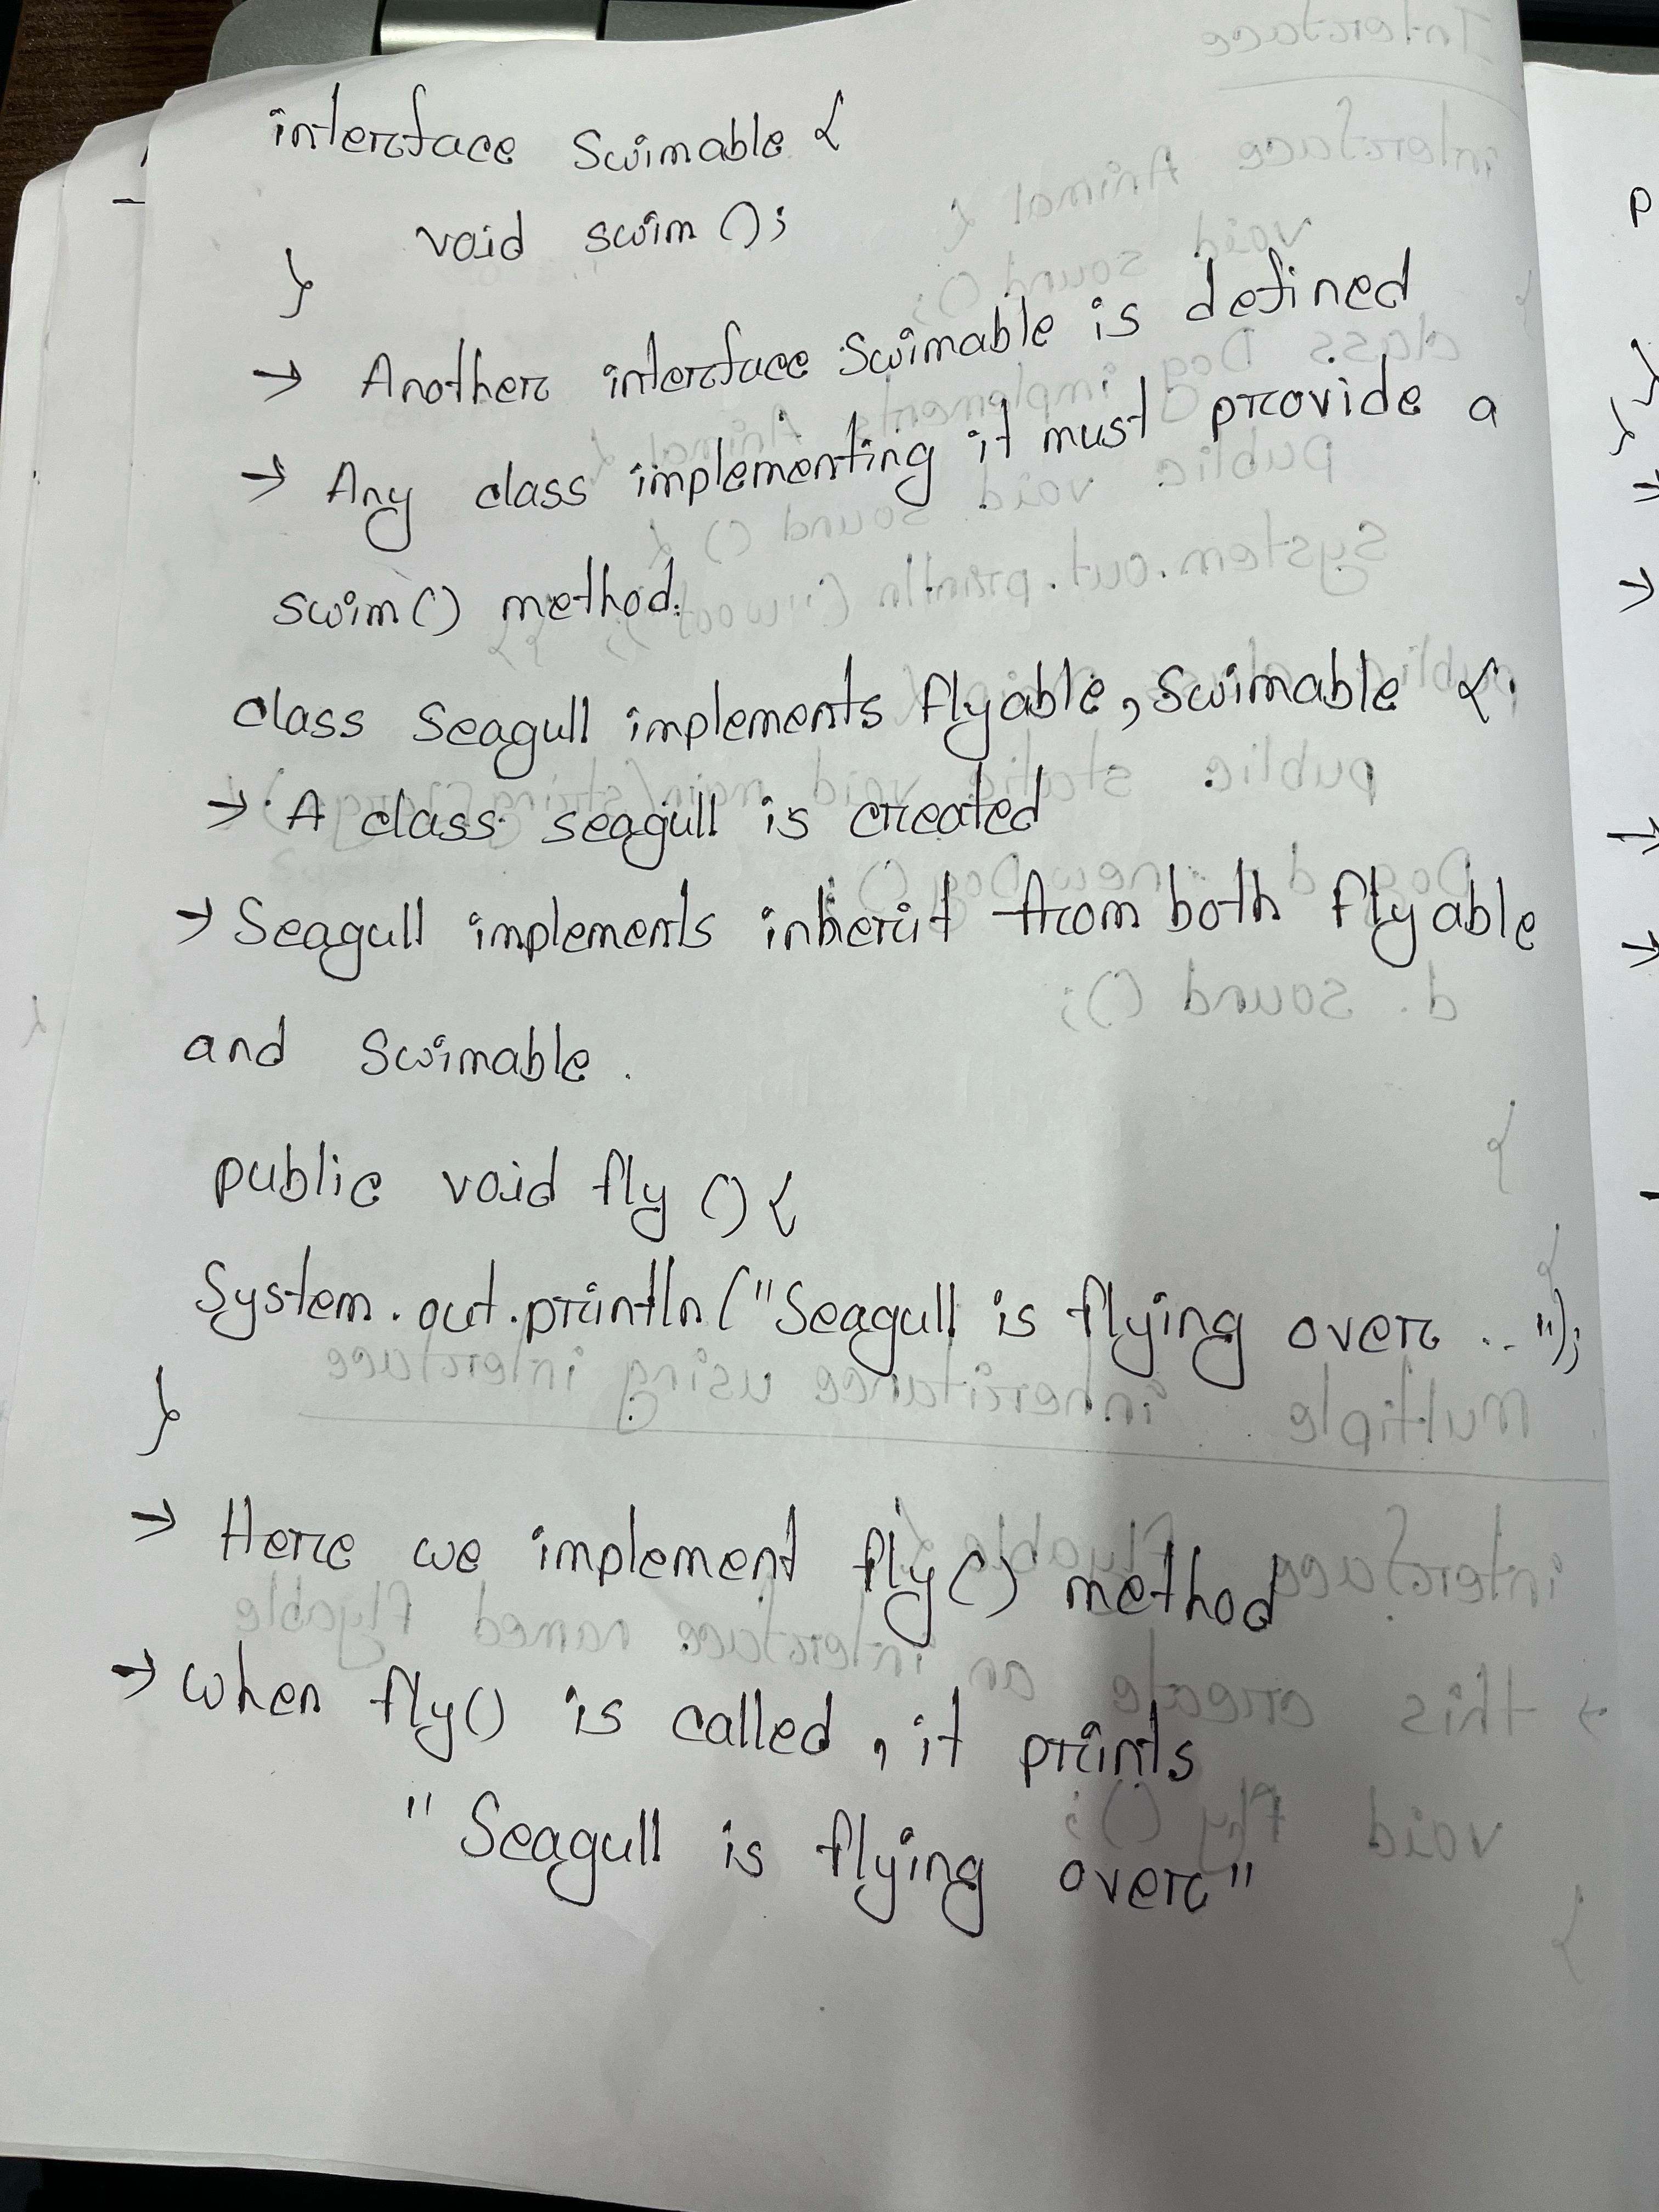 interface Swimable {
void swim ();
}
→ Another interface Swimable is defined
→ Any class implementing it must provide a
swim() method.
class Seagull implements flyable, Swimable {
→ A class seagull is created
→ Seagull implements inherit from both flyable
and Swimable.
public void fly () {
System.out.println("Seagull is flying over .. ");
}
→ Here we implement fly() method
→ when fly() is called, it prints
"Seagull is flying over"